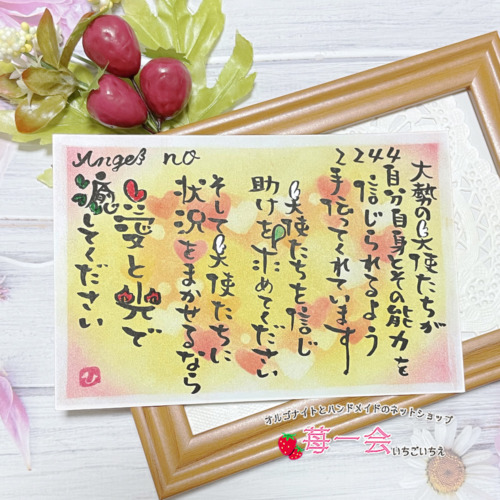 大勢の天使たちが
4自分自身とその能力を
24信じられるよう
2手伝ってくれています
天使たちを信じ
助けを求めてください
そして天使たちに
状況をまかせるなら
愛と光で
癒してください
Angel's no
ひ
オルゴナイトとハンドメイドのネットショップ
苺一会 いちごいちえ